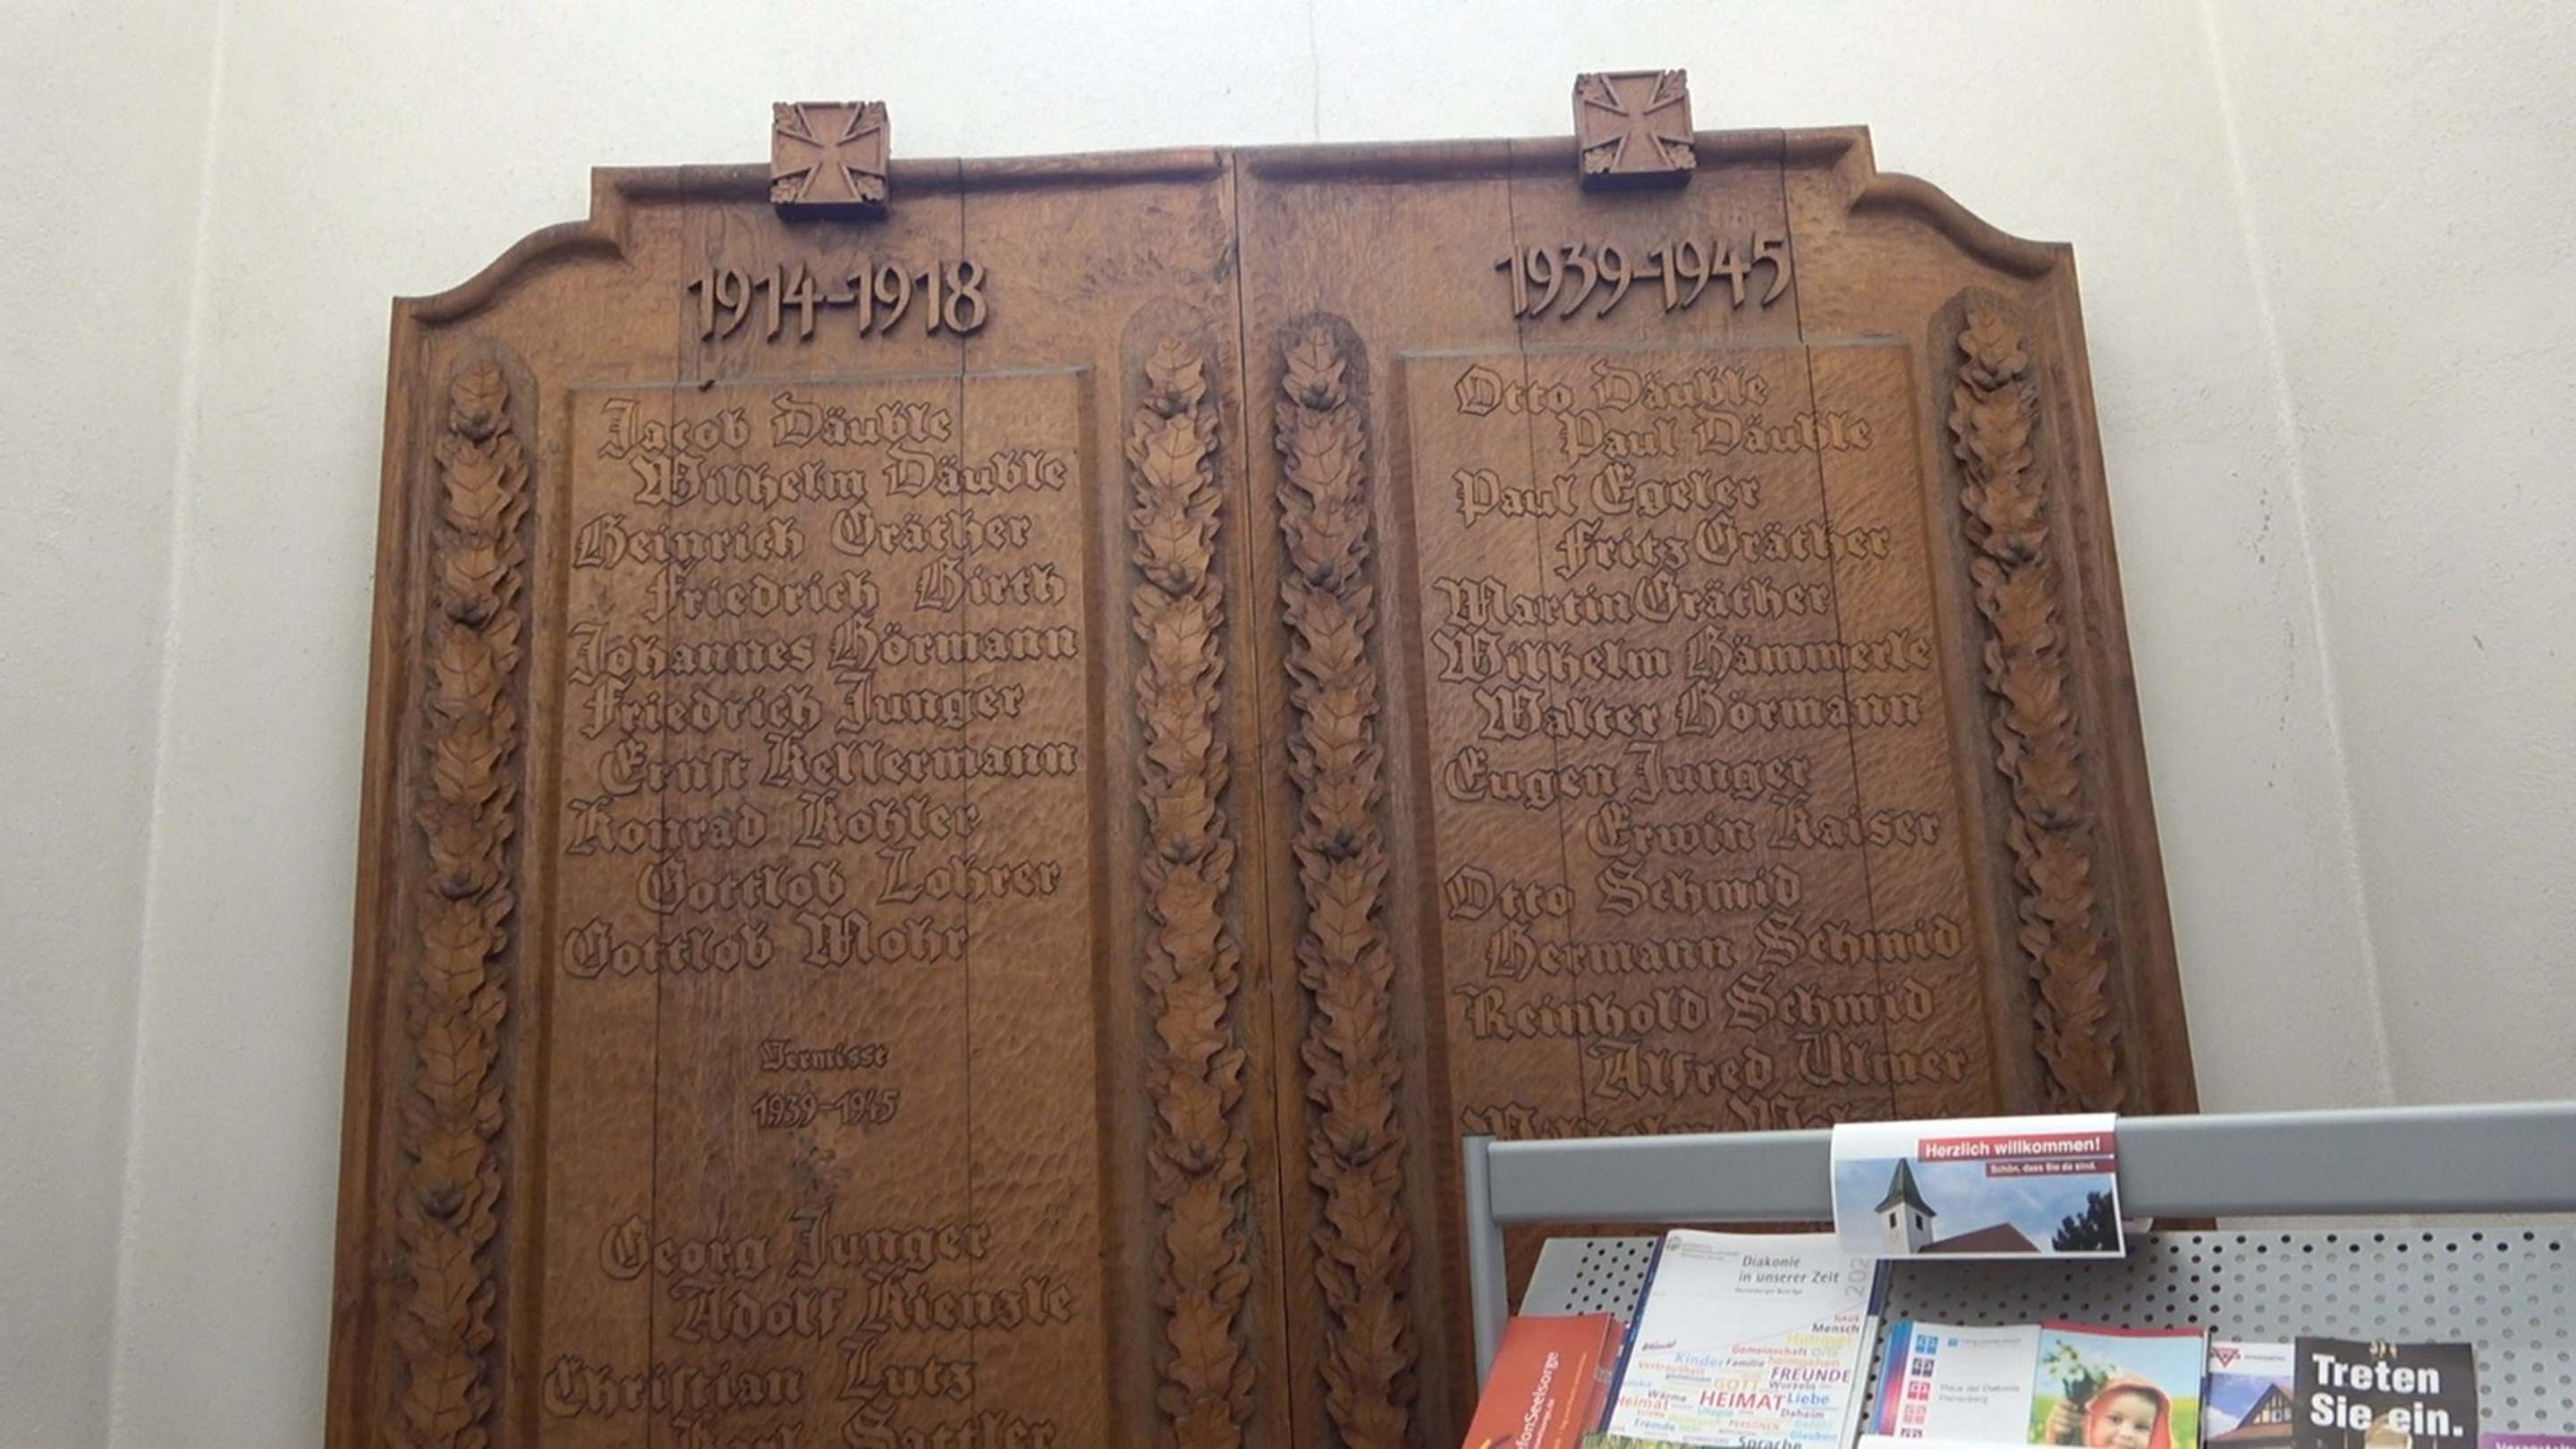 1914-1918
Jacob Däuble
Wilhelm Däuble
Heinrich Gräther
Friedrich Hirth
Johannes Hörmann
Friedrich Junger
Ernst Kellermann
Konrad Kohler
Gottlob Lohrer
Gottlob Mohr
Vermisst
1939-1945
Georg Junger
Adolf Kienzle
Christian Lutz
Karl Sattler
1939-1945
Otto Däuble
Paul Däuble
Paul Egeler
Fritz Gräther
Martin Gräther
Wilhelm Hämmerle
Walter Hörmann
Eugen Junger
Erwin Kaiser
Otto Schmid
Hermann Schmid
Reinhold Schmid
Alfred Ulmer
Herzlich willkommen!
Schön, dass Sie da sind.
Diakonie
in unserer Zeit
HAUS
Mensch
Himmel
Gemeinschaft
Kinder Familie heimgehen
FREUNDE
GOTT Wurzeln
Wärme HEIMAT Liebe
Heimat
Daheim
Freunde
Glauben
Sprache
Haus der Diakonie
Treten
Sie ein.